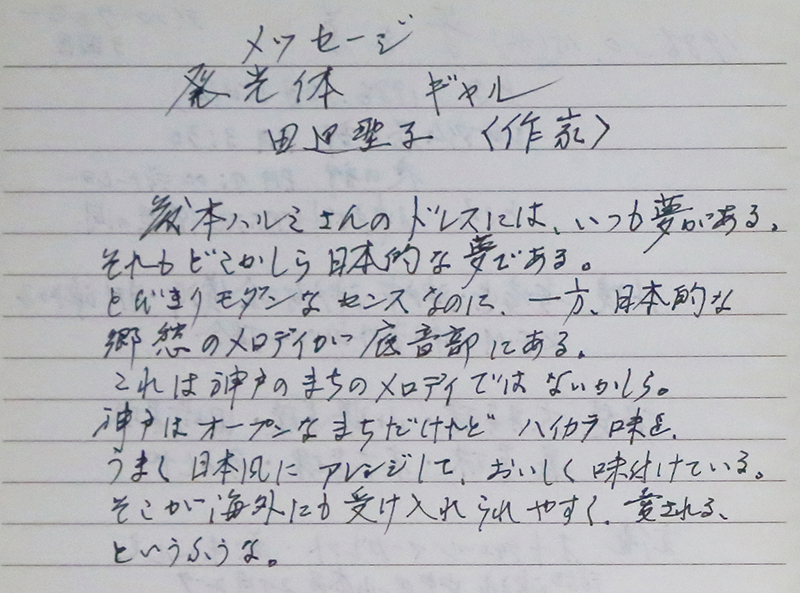 メッセージ
発光体 ギャル
田辺聖子 〈作家〉
藏本ハルミさんのドレスには、いつも夢がある。
それもどこかしら日本的な夢である。
とびきりモダンなセンスなのに、一方、日本的な
郷愁のメロディが底音部にある。
これは神戸のまちのメロディではないかしら。
神戸はオープンなまちだけれど ハイカラ味を、
うまく日本風にアレンジして、おいしく味付けている。
そこが海外にも受け入れられやすく、愛される、
というふうな。